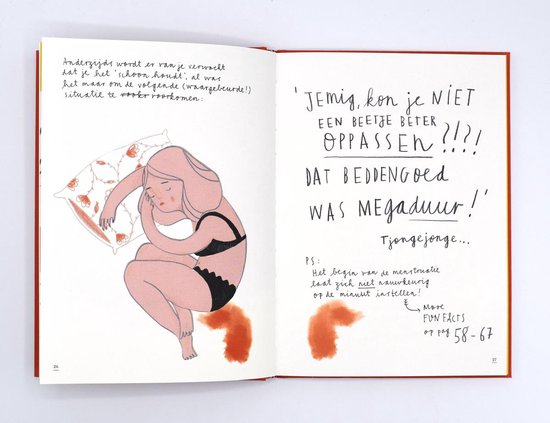 Anderzijds wordt er van je verwacht
dat je het 'schoon houdt', al was
het maar om de volgende (waargebeurde!)
situatie te voorkomen:
26
'JEMIG, kon je NIET
EEN BEETJE BETER
OPPASSEN?!?!
DAT BEDDENGOED
WAS MEGAduur!'
Tjongejonge...
PS:
Het begin van de menstruatie
laat zich niet nauwkeurig
op de minuut instellen!
MORE
FUN FACTS
op pag 58-67
27